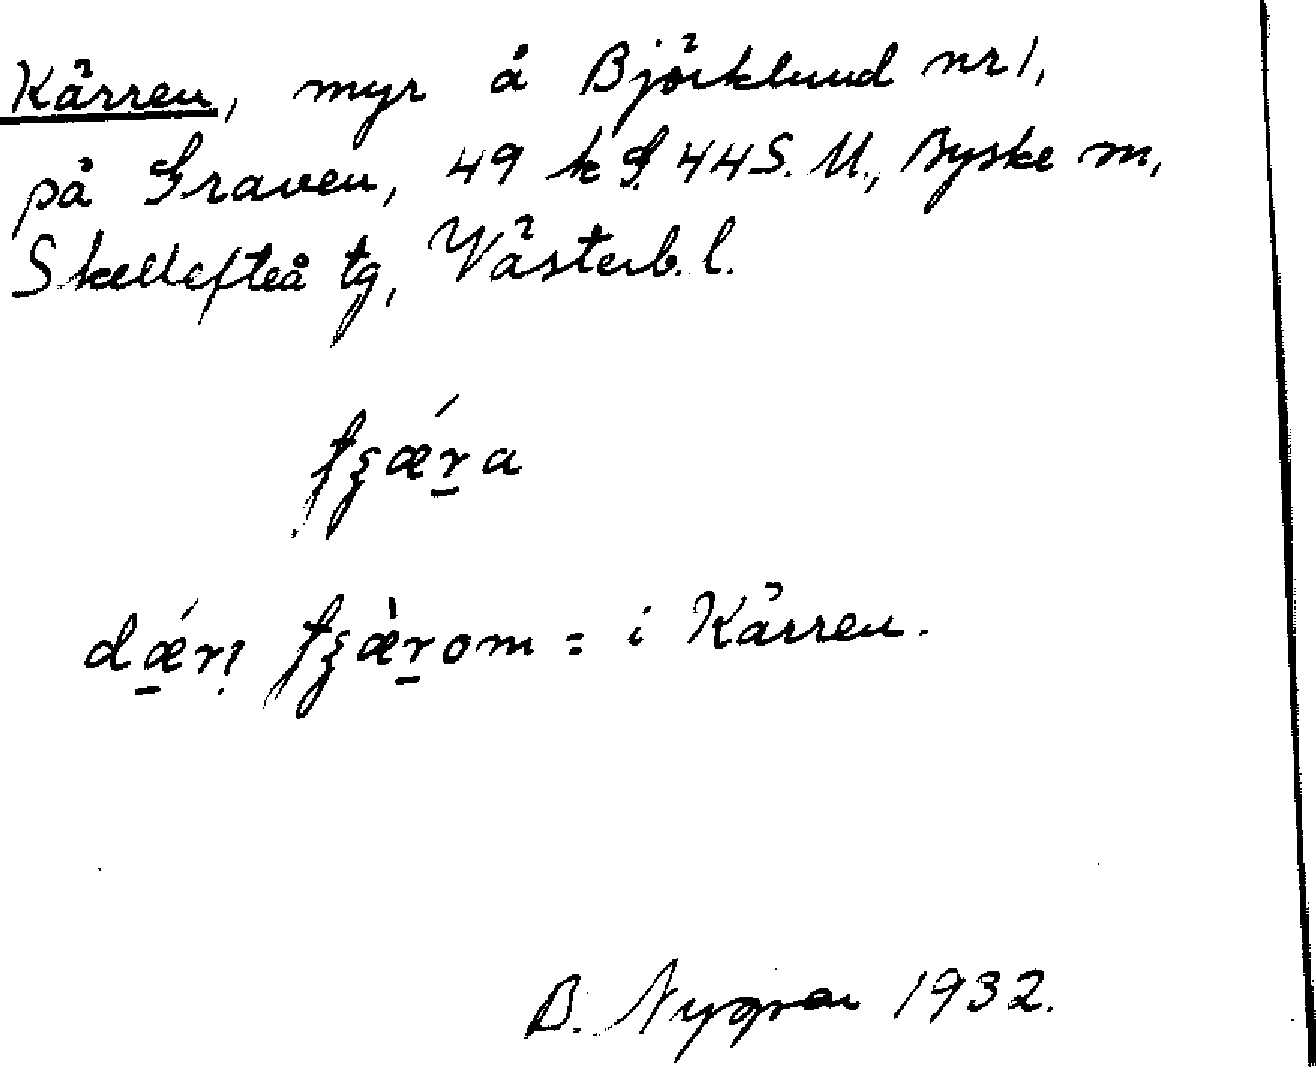 Kärren, myr å Björklund nr 1,
på Graven, 49 k S. 44 S. U., Byske m,
Skellefteå tg, Västerb. l.
tʂǽr̲a
dǽ̲rı̣ tʂæ̀r̲om = i Kärren.
B. Nygren 1932.